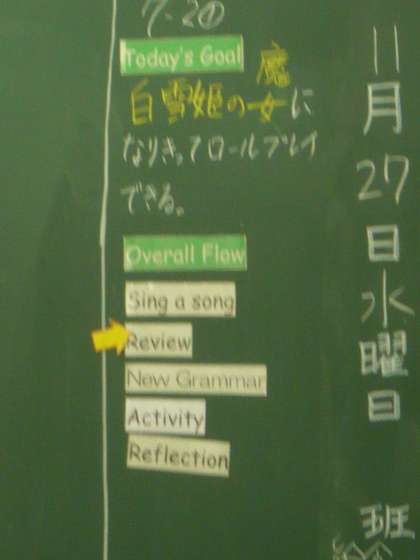 7-2①
Today's Goal
白雪姫の魔女に
なりきってロールプレイ
できる。
Overall Flow
Sing a song
Review
New Grammar
Activity
Reflection
11月27日水曜日
班